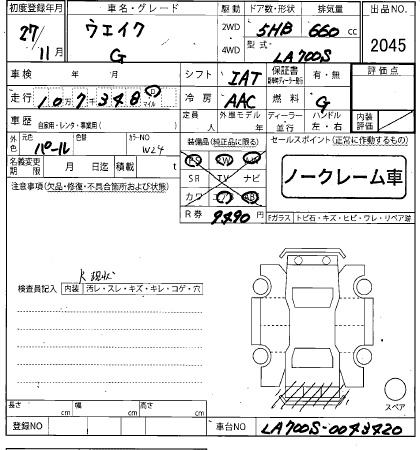 初度登録年月 車名・グレード 駆動 ドア数・形状 排気量 出品NO.
27/11月 ウエイク G 2WD 4WD 5HB 660 cc 2045
型式 LA700S
車検 年 月 シフト IAT 保証書 有・無 評価点
走行 10万7千348 マイル 冷房 AAC 燃料 G
車歴 自家用・レンタ・事業用( ) 定員 人 外車モデル 年 ディーラー 並行 ハンドル 左・右 内装評価
外色 元色 パール 色替 カラーNO W24 装備品(純正品に限る) セールスポイント(正常に作動するもの)
名義変更期限 月 日迄 積載 t SR TV ナビ
ノークレーム車
注意事項(欠品・修復・不具合箇所および状態) カワ
R券 9490円
Fガラス トビ石・キズ・ヒビ・ワレ・リペア跡
現状
検査員記入 内装 汚レ・スレ・キズ・キレ・コゲ・穴
スペア
長さ cm 幅 cm 高さ cm
登録NO 車台NO LA700S-0043420